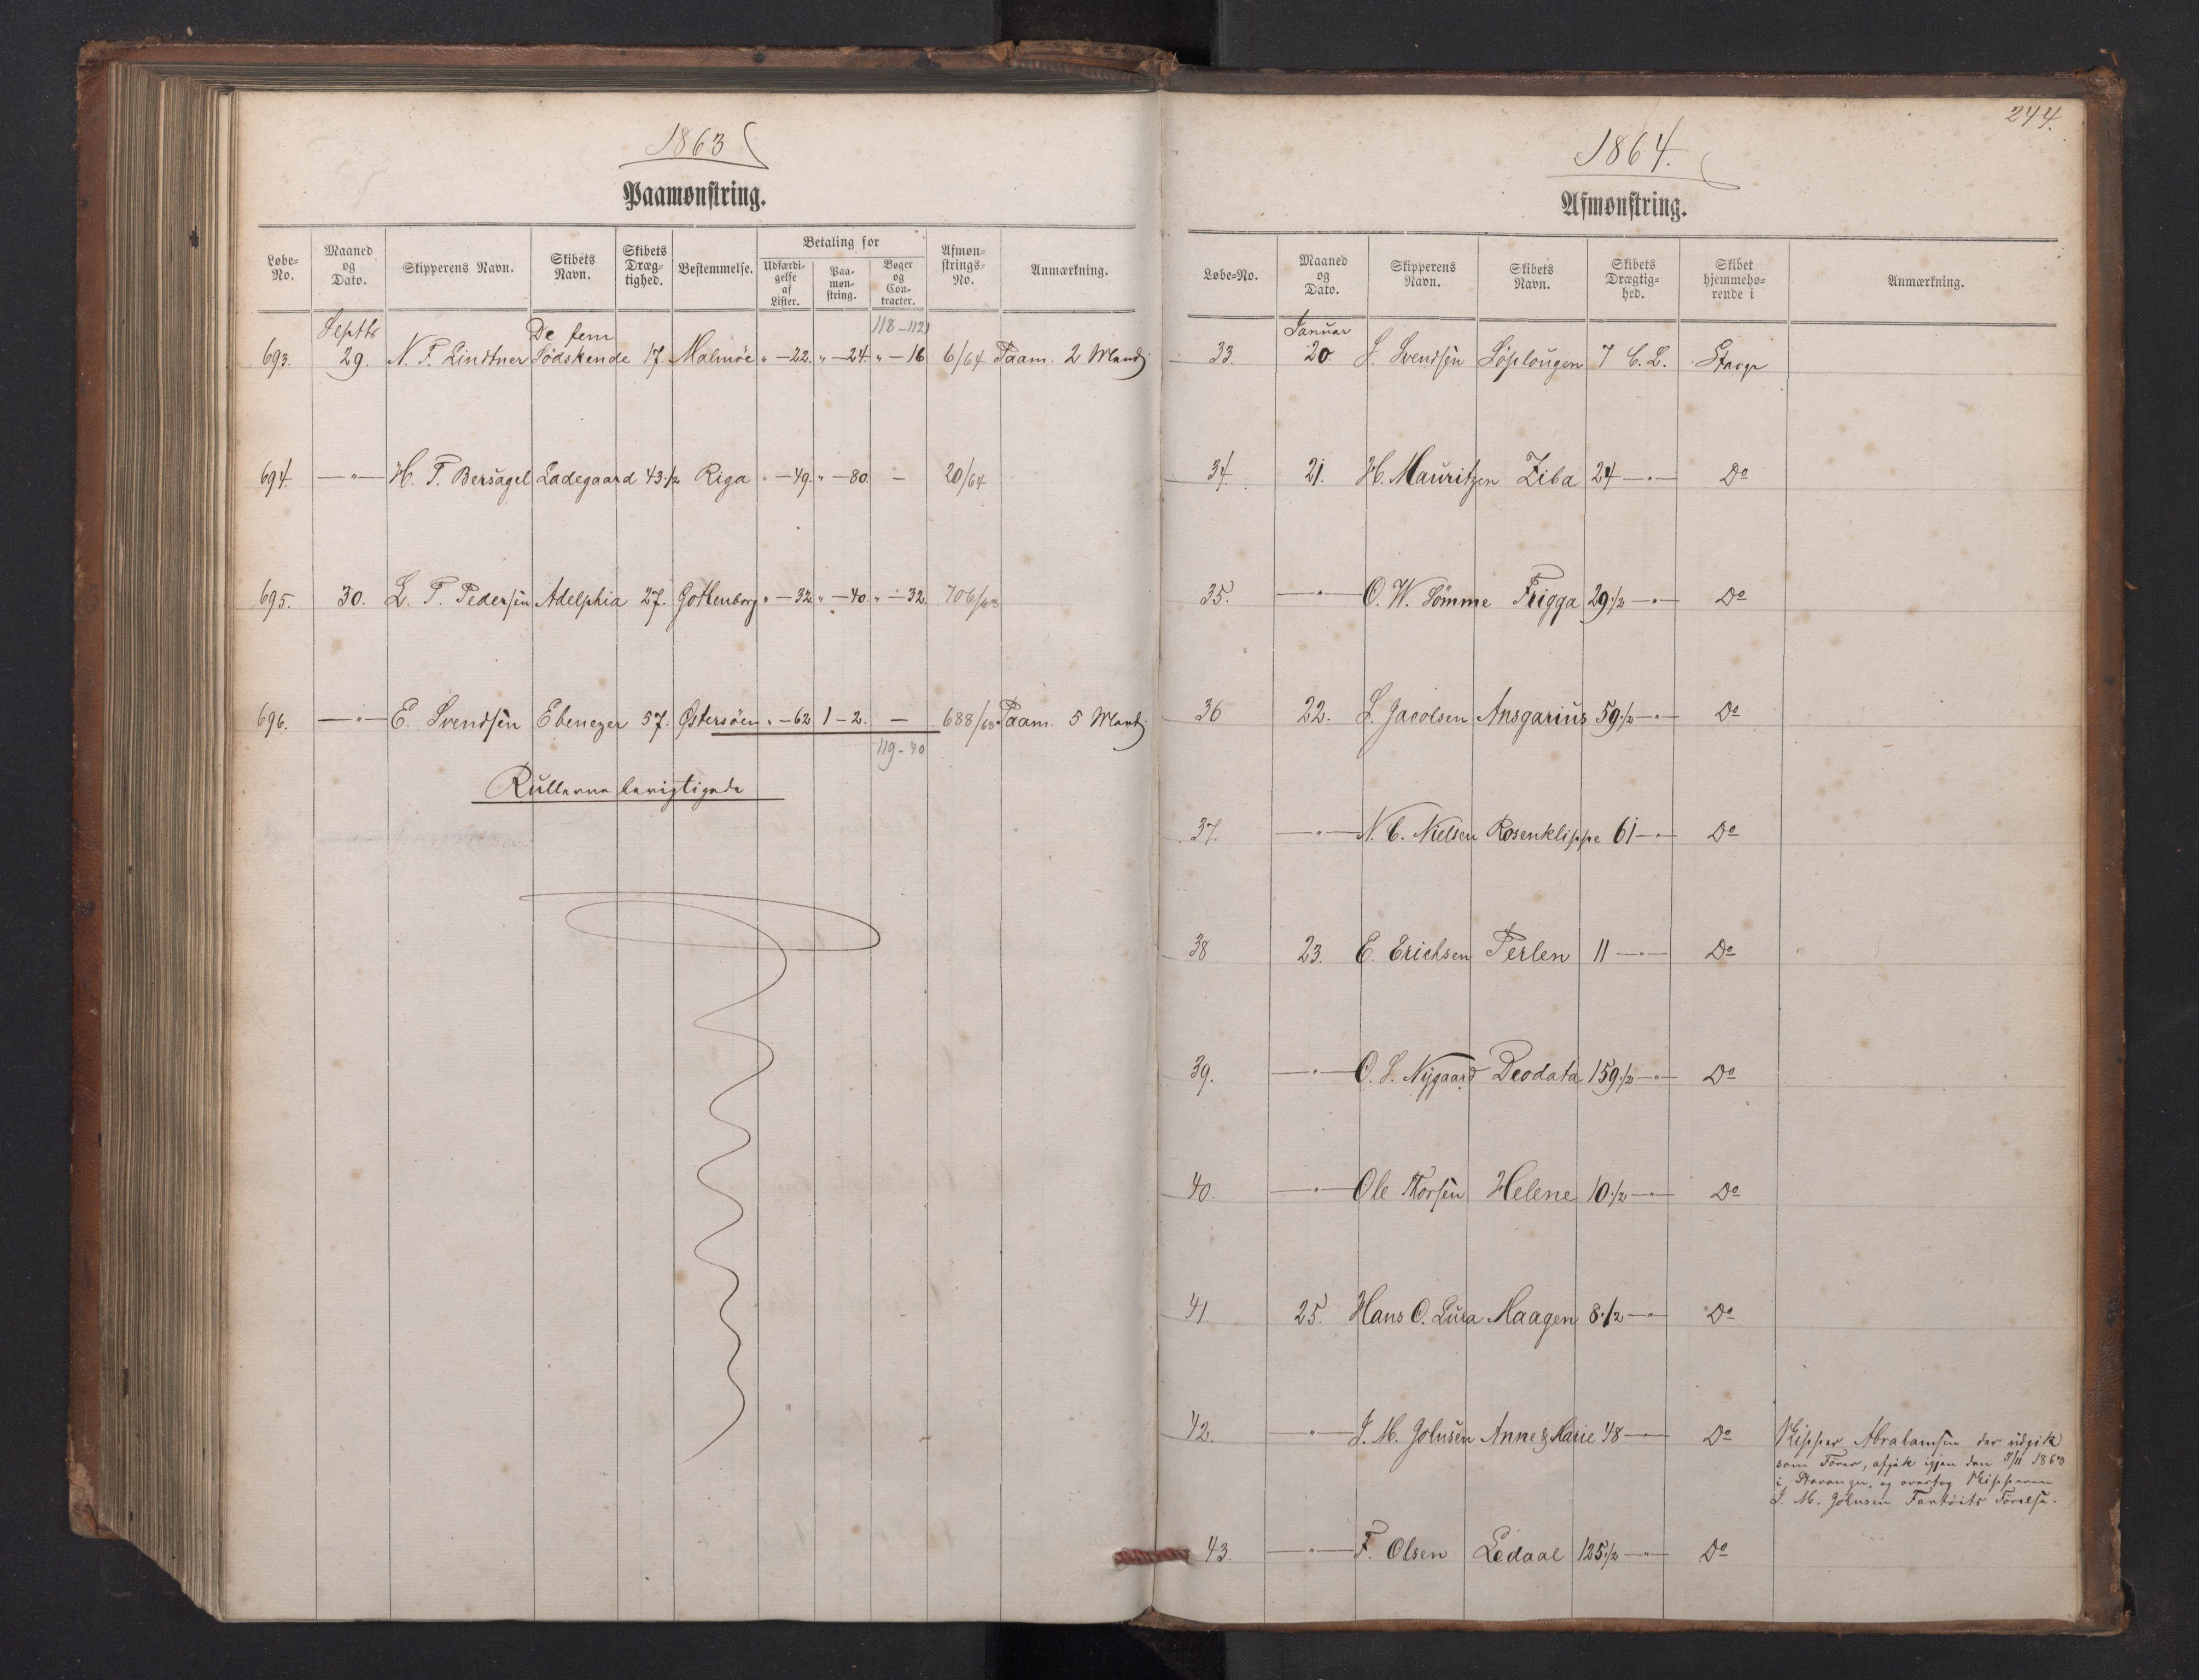 1863
Paamønstring.
Løbe-No. Maaned og Dato. Skipperens Navn. Skibets Navn. Skibets Dræg-tighed. Bestemmelse. Betaling for Udfærdi-gelse af Lister. Paa-møn-string. Bøger og Con-tracter. Afmøn-strings-No. Anmærkning.
118-112
Septbr De fem
693. 29. N. F. Lindtner Södskende 17. Malmöe " - 22. " - 24 " - 16 6/64 Paam. 2 Mand
694. — " — H. T. Bersagel Ladegaard 43 1/2 Riga " - 49. " - 80. - 20/64
695. 30. L. T. Pedersen Adelphia 27. Gothenborg " - 32. " - 40. " - 32. 706/63
696. — " — E. Svendsen Ebenezer 57. Østersöen " - 62 1 - 2. - 688/63 Paam. 5 Mand
119-40
Rullerne berigtigede
244.
1864.
Afmønstring.
Løbe-No. Maaned og Dato. Skipperens Navn. Skibets Navn. Skibets Drægtig-hed. Skibet hjemmehø-rende i Anmærkning.
Januar
33. 20. S. Svendsen Söplougen 7 C. L. Stvgr
34. 21. H. Mauritzen Ziba 24 — " — Do
35. — " — O. W. Tömme Frigga 29 1/2 — " — Do
36 22. S. Jacobsen Ansgarius 59 1/2 — " — Do
37. — " — N. C. Nielsen Rosenklippe 61 — " — Do
38 23. E. Erichsen Perlen 11 — " — Do
39. — " — O. S. Nygaard Deodata 159 1/2 — " — Do
40. — " — Ole Thorsen Helene 10 1/2 — " — Do
41. 25. Hans O. Lura Haagen 8 1/2 — " — Do
42. — " — J. M. Johnsen Anne & Marie 48 — " — Do Skipper Abrahamsen der udgik
som Förer, afgik igjen den 5/11 1863
i Stavanger, og overtog Skipperen
J. M. Johnsen Fartöiets Förelse.
43. — " — F. Olsen Ledaal 125 1/2 — " — Do